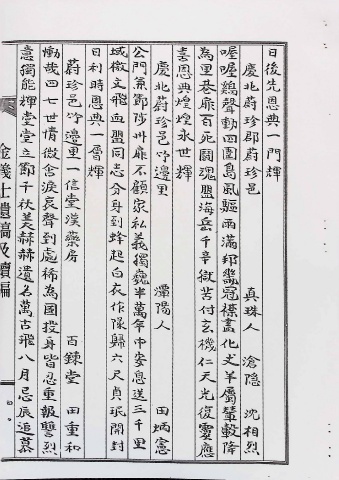 日後先恩典一門輝
慶北蔚珍郡蔚珍邑　真珠人　滄隱　沈相烈
喔喔鷄聲動四圍島風驅兩滿邦幾冠襟盡化犬羊屬輦轂降
為里巷雇百死鬪魂盟海岳千辛獄苦付玄機仁天光復靈應
喜恩典煌煌永世輝
慶北蔚珍邑竹邊里　潭陽人　田炳憲
公門無節莎州雇不顧家私義獨巍半萬年中安息送三千里
域檄文飛血盟同志分身到蜂起白衣作隊歸六尺貞珉開封
日利時恩典一層輝
蔚珍邑竹邊里一信堂漢藥房　百鍊堂　田重和
慟哉四七世情微含淚哀聲到處稀為國投身皆忍重報讐烈
意獨能輝堂堂立節千秋美赫赫遺名萬古飛八月忌辰追慕
金義士遺稿及續編